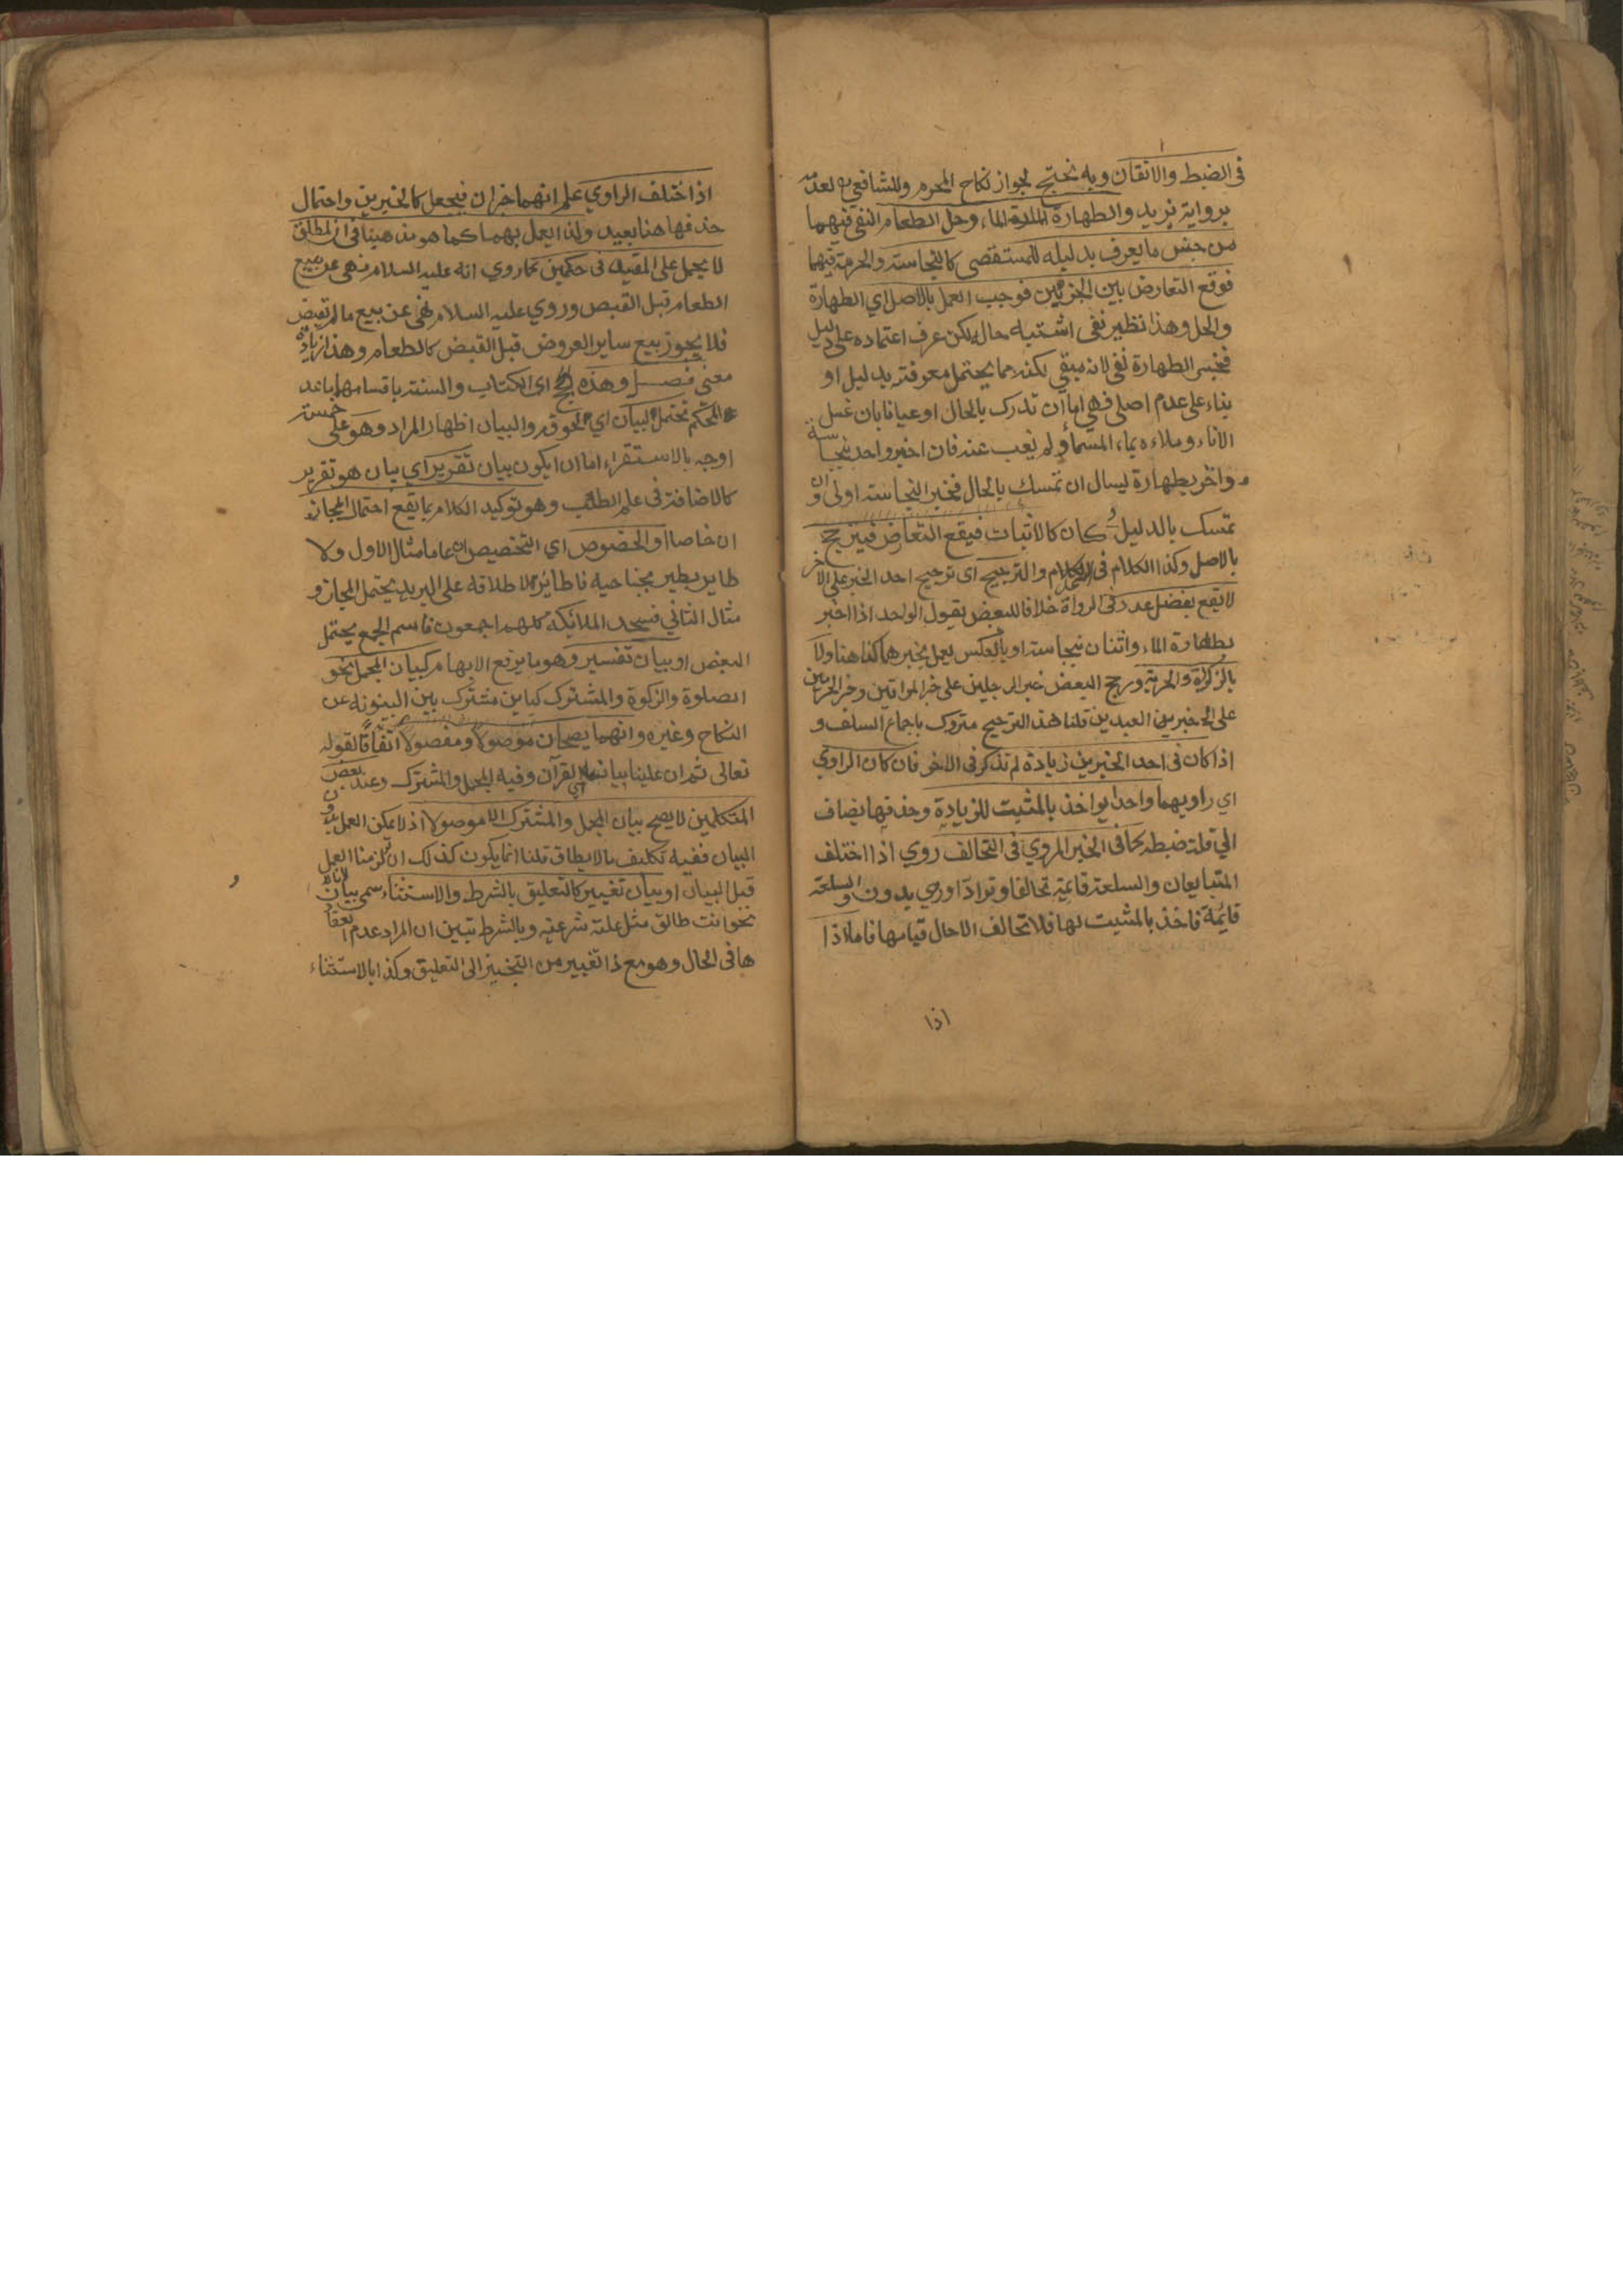 في الضبط والاتقان وبه نحتج لجواز نكاح المحرم وللشافعي لعدمه
برواية يزيد والطهارة الماء وحل الطعام النفي فيهما
من جنس ما يعرف بدليله للمستقصى كالنجاسة والحرمة فيهما
فوقع التعارض بين الخبرين فوجب العمل بالاصل اي الطهارة
والحل وهذا نظير نفي اشتبه حاله لكن عرف اعتماده على دليل
فخبر الطهارة نفي لانه مبقي لكنه مما يحتمل معرفته بدليل او
بناء على عدم اصلي فهي اما ان تدرك بالحال او عيانا بان غسل
الاناء وملاءه بماء السماء ولم يغب عنه فان اخبر واحد بنجاسة
واخر بطهارة ليسال ان تمسك بالحال فخبر النجاسة اولى وان
تمسك بالدليل كان كالاثبات فيقع التعارض فيترجح
بالاصل وكذا الكلام في والترجيح اي ترجيح احد الخبر على الاخر
لا يقع بفضل عدد في الرواة خلافا للبعض يقول الواحد اذا اخبر
بطهارة الماء واثنان بنجاسته او بالعكس يعمل بخبرهما كذا هنا ولا
بالذكورة والحرية ورجح البعض خبر الرجلين على خبر المراتين وخبر الحرين
على الخبر من العبدين قلنا هذا الترجيح متروك باجماع السلف و
اذا كان في احد الخبرين زيادة لم تذكر في الاخر فان كان الراوي
اي راويهما واحدا يواخذ بالمثبت للزيادة وحذفها يضاف
الي قلة ضبطه كما في الخبر المروي في التحالف روي اذا اختلف
المتبايعان والسلعة قائمة تحالفا وترادا وروي بدون والسلعة
قائمة فاخذ بالمثبت لها فلا تحالف الا حال قيامها فاما اذا
اذا
اذا اختلف الراوي علم انهما خبران فيجعل كالخبرين واحتمال
حذفها هنا بعيد ولذا العمل بهما كما هو مذهبنا في ان المطلق
لا يحمل على المقيد في حكمين كما روي انه عليه السلام نهى عن بيع
الطعام قبل القبض وروي عليه السلام نهى عن بيع ما لم تقبض
فلا يجوز بيع ساير العروض قبل القبض كالطعام وهذا زيادة
معنى فصل وهذه الحجج اي الكتاب والسنة باقسامها ما عد
المحكم تحتمل البيان اي لحوقه والبيان اظهار المراد وهو على خمسة
اوجه بالاستقراء اما ان يكون بيان تقرير اي بيان هو تقرير
كالاضافة في علم الطب وهو توكيد الكلام بما يقع احتمال المجاز
ان خاصا او الخصوص اي التخصيص ان عاما مثال الاول ولا
طاير يطير بجناحيه فا طائر لاطلاقه على البريد يحتمل المجاز و
مثال الثاني فسجد الملائكة كلهم اجمعون فاسم الجمع يحتمل
البعض او بيان تفسير وهو ما يرفع الابهام كبيان المجمل نحو
الصلوة والزكوة والمشترك كباين مشترك بين البينونة عن
النكاح وغيره وانهما يصحان موصولا ومفصولا اتفاقا لقوله
تعالى ثم ان علينا بيانه اي القرآن وفيه المجمل والمشترك وعند بعض
المتكلمين لا يصح بيان المجمل والمشترك الا موصولا اذ لا يمكن العمل بدون
البيان ففيه تكليف بما لا يطاق قلنا انما يكون كذلك ان لزمنا العمل
قبل البيان او بيان تغيير كالتعليق بالشرط والاستثناء سمي بيانا لان
نحو انت طالق مثل علة شرعية وبالشرط تبين ان المراد عدم انعقا
ها في الحال وهو مع ذا تغيير من التنجيز الى التعليق وكذا بالاستثناء